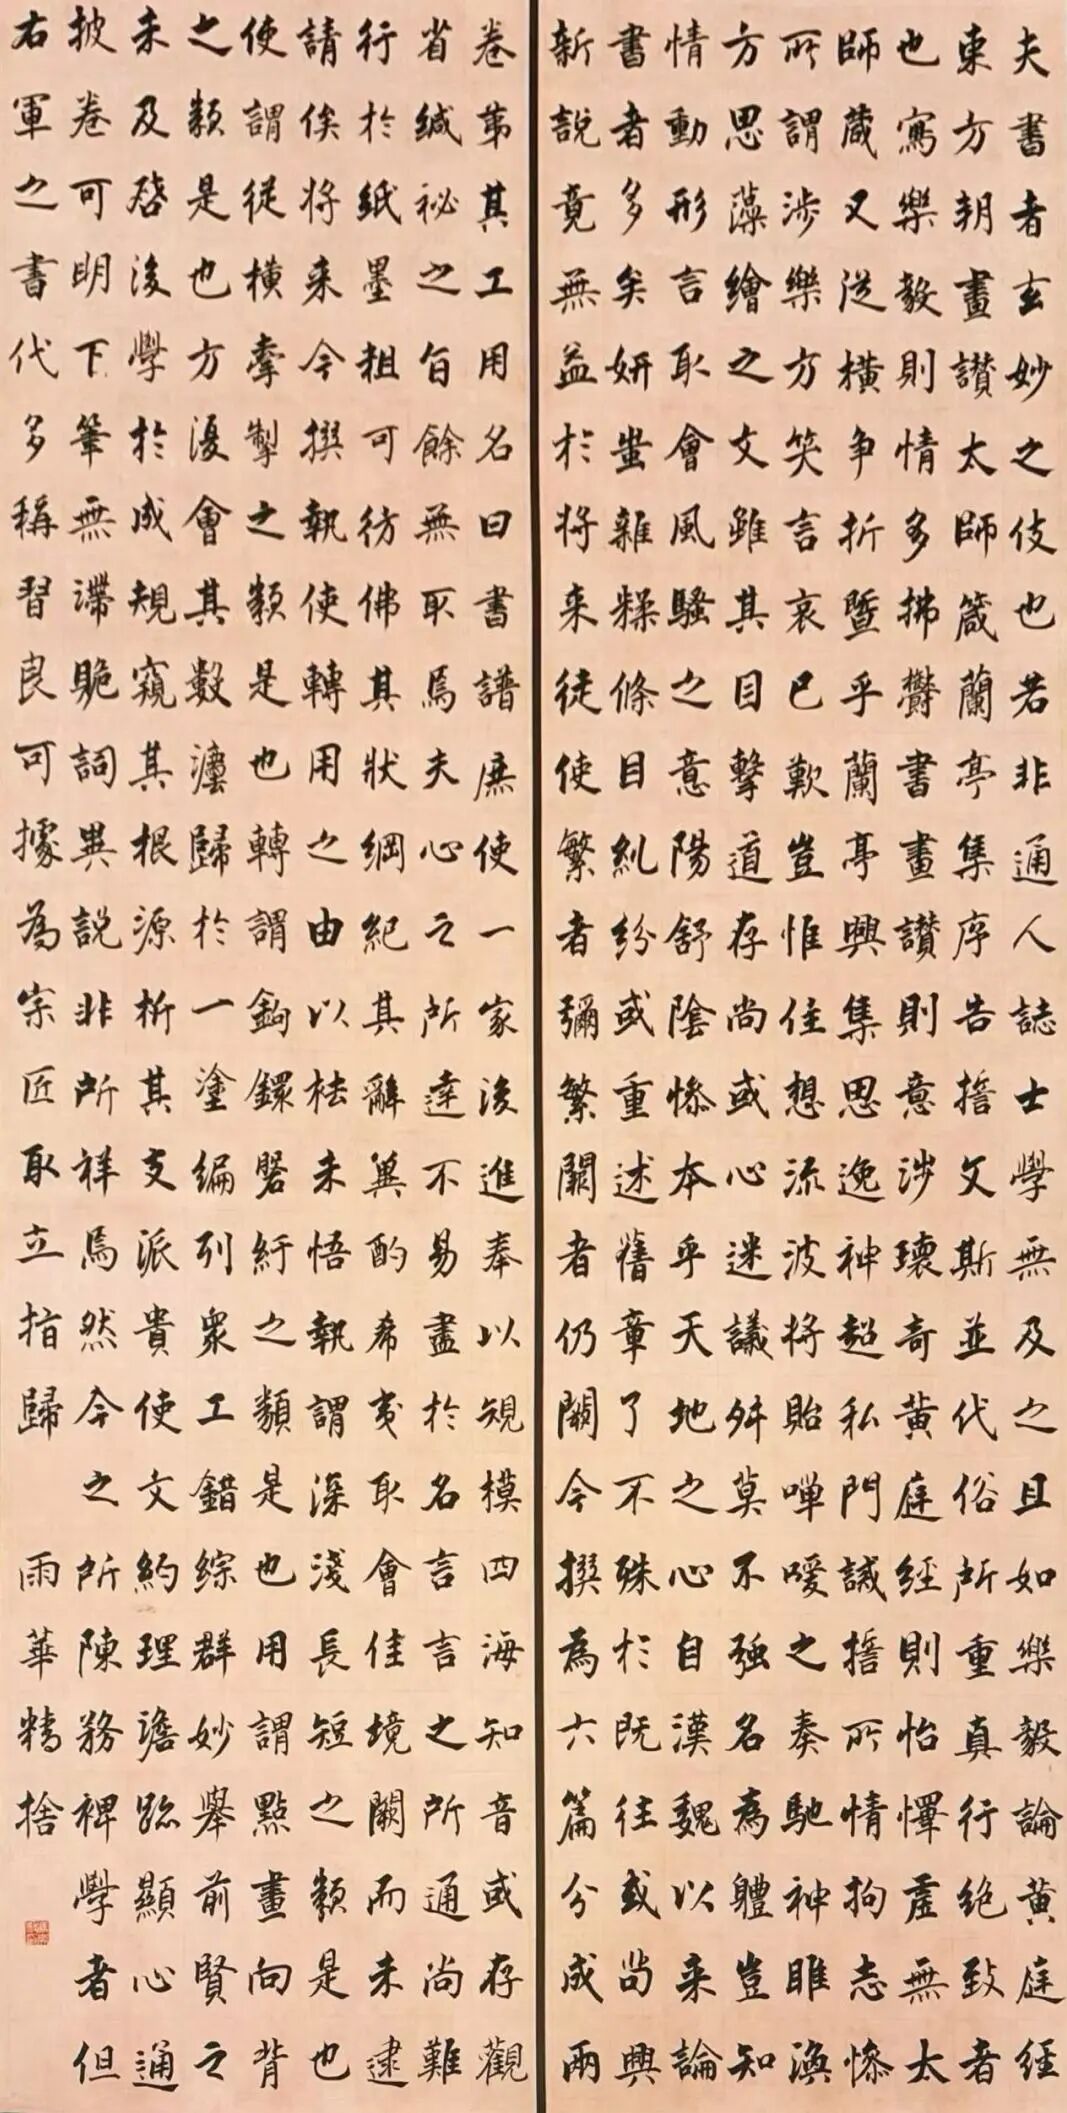 夫書者玄妙之伎也若非通人誌士學無及之且如樂毅論黃庭經
東方朔畫讚太師箴蘭亭集序告誓文斯並代俗所重真行絕致者
也寫樂毅則情多拂鬱書畫讚則意涉瓌奇黃庭經則怡懌虛無太
師葴又從橫爭折暨乎蘭亭興集思逸神超私門誡誓所情拘志慘
所謂涉樂方笑言哀已歎豈惟住想流波將貽嘽噯之奏馳神睢渙
方思藻繪之文雖其目擊道存尚或心迷議舛莫不強名為體豈知
情動形言取會風騷之意陽舒陰慘本乎天地之心自漢魏以來論
書者多矣妍蚩雜糅條目糺紛或重述舊章了不殊於既往或茍興
新說竟無益於將來徒使繁者彌繁闕者仍闕今撰為六篇分成兩
卷第其工用名曰書譜庶使一家後進奉以規模四海知音或存觀
省緘祕之旨餘無取焉夫心之所達不易盡於名言言之所通尚難
行於紙墨粗可彷佛其狀綱紀其辭冀酌希夷取會佳境闕而未逮
請俟將來今撰執使轉用之由以袪未悟執謂深淺長短之類是也
使謂從橫牽掣之類是也轉謂鉤鐶盤紆之類是也用謂點畫向背
之類是也方復會其數灋歸於一塗編列眾工錯綜群妙舉前賢之
未及啓後學於成規窺其根源析其支派貴使文約理贍跡顯心通
披卷可明下筆無滯詭詞異說非所祥焉然今之所陳務裨學者但
右軍之書代多稱習良可據為宗匠取立指歸 雨華精捨